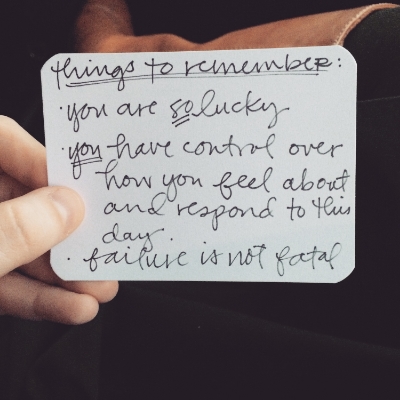 things to remember:
· you are so lucky
· you have control over
how you feel about
and respond to this
day.
· failure is not fatal